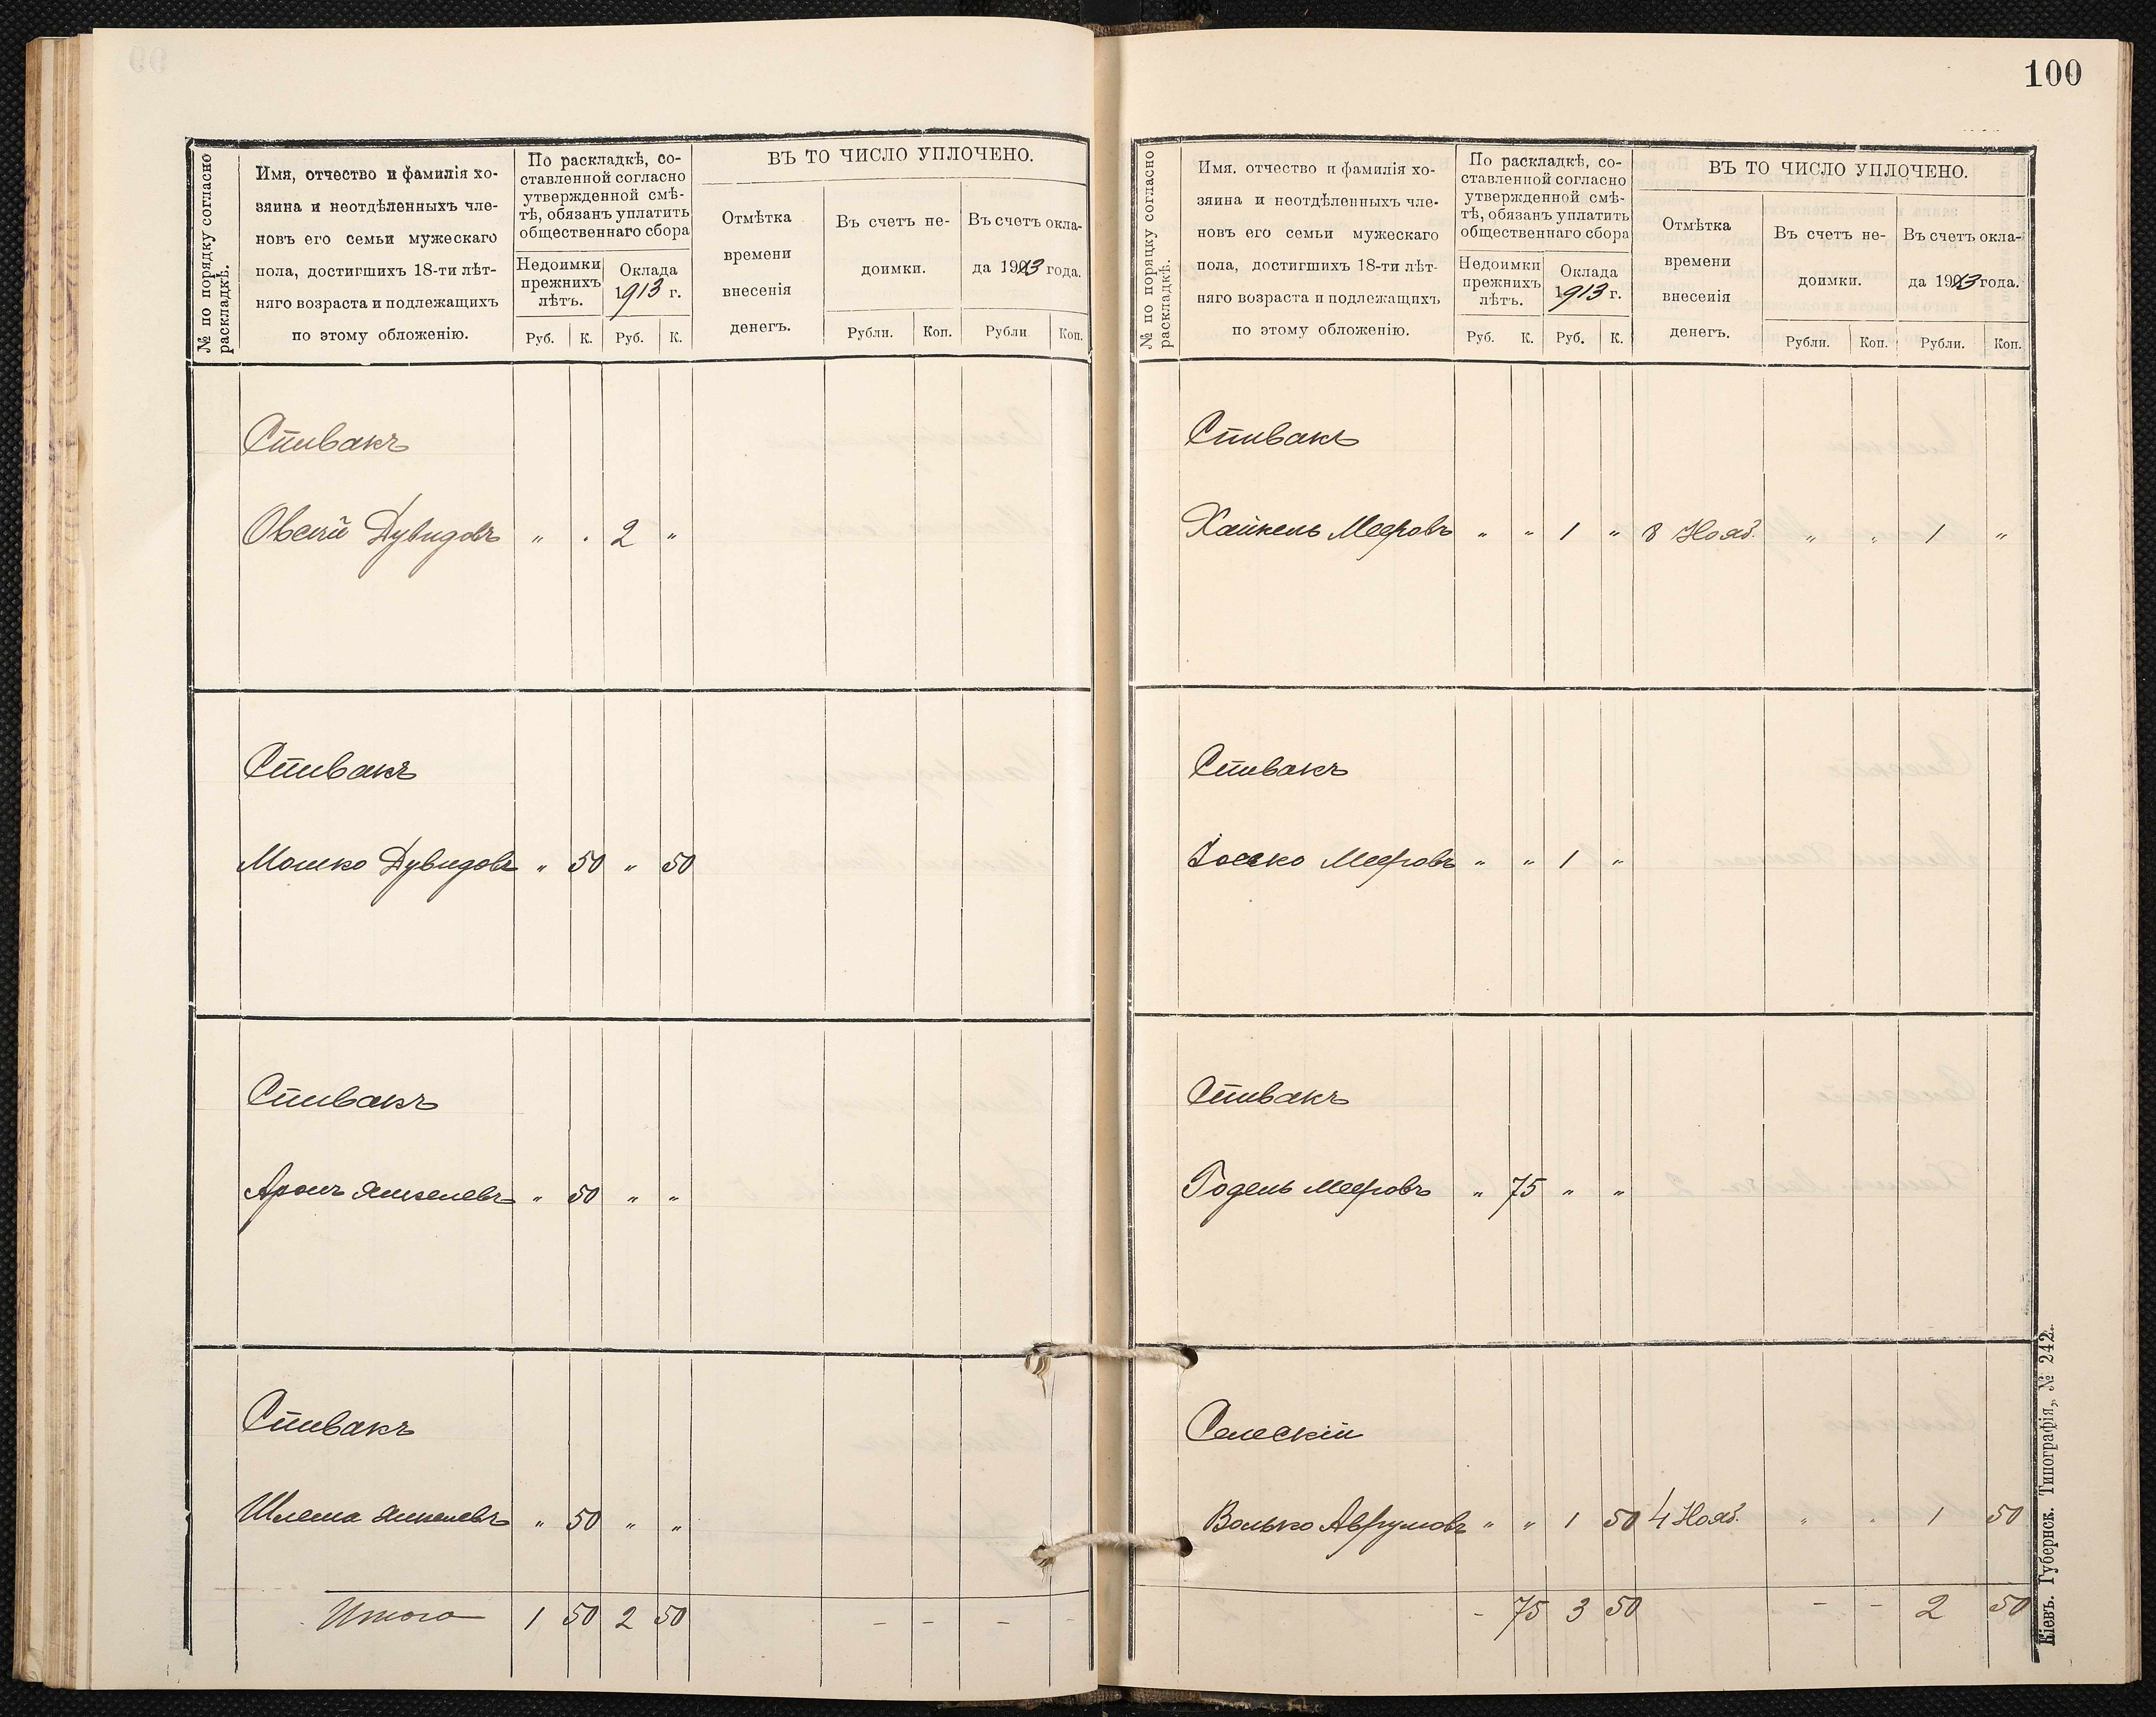 № по порядку согласно
раскладкѣ.
Имя, отчество и фамилія хо-
зяина и неотдѣленныхъ чле-
новъ его семьи мужескаго
пола, достигшихъ 18-ти лѣт-
няго возраста и подлежащихъ
по этому обложенію.
По раскладкѣ, со-
ставленной согласно
утвержденной смѣ-
тѣ, обязанъ уплатить
общественнаго сбора
Недоимки
прежнихъ
лѣтъ.
Оклада
1913 г.
Руб. К. Руб. К.
ВЪ ТО ЧИСЛО УПЛОЧЕНО.
Отмѣтка
времени
внесенія
денегъ.
Въ счетъ не-
доимки.
Въ счетъ окла-
да 1913 года.
Рубли. Коп. Рубли Коп.
Спивакъ
Овсей Дувидовъ „ . 2 „
Спивакъ
Мошко Дувидовъ „ 50 „ 50
Спивакъ
Аронъ Янкелевъ „ 50 „ „
Спивакъ
Шлема Янкелевъ „ 50 „ „
Итого 1 50 2 50 - - - -
100
№ по поряцку согласно
раскладкѣ.
Имя. отчество и фамилія хо-
зяина и неотдѣленныхъ чле-
новъ его семьи мужескаго
пола, достигшихъ 18-ти лѣт-
няго возраста и подлежащихъ
по этому обложенію.
По раскладкѣ, со-
ставленной согласно
утвержденной смѣ-
тѣ, обязанъ уплатить
общественнаго сбора
Недоимки
прежнихъ
лѣтъ.
Оклада
1913 г.
Руб. К. Руб. К.
ВЪ ТО ЧИСЛО УПЛОЧЕНО.
Отмѣтка
времени
внесенія
денегъ.
Въ счетъ не-
доимки.
Въ счетъ окла-
да 1913 года.
Рубли. Коп. Рубли. Коп.
Спивакъ
Хайкель Мееровъ „ „ 1 „ 8 Нояб. „ „ 1 „
Спивакъ
Іосько Мееровъ „ „ 1 „
Спивакъ
Годель Мееровъ „ 75 „ „
Селескій
Волько Аврумовъ „ „ 1 50 4 Нояб. „ „ 1 50
- 75 3 50 - - 2 50
Кіевъ. Губернск. Типографія„ № 242.